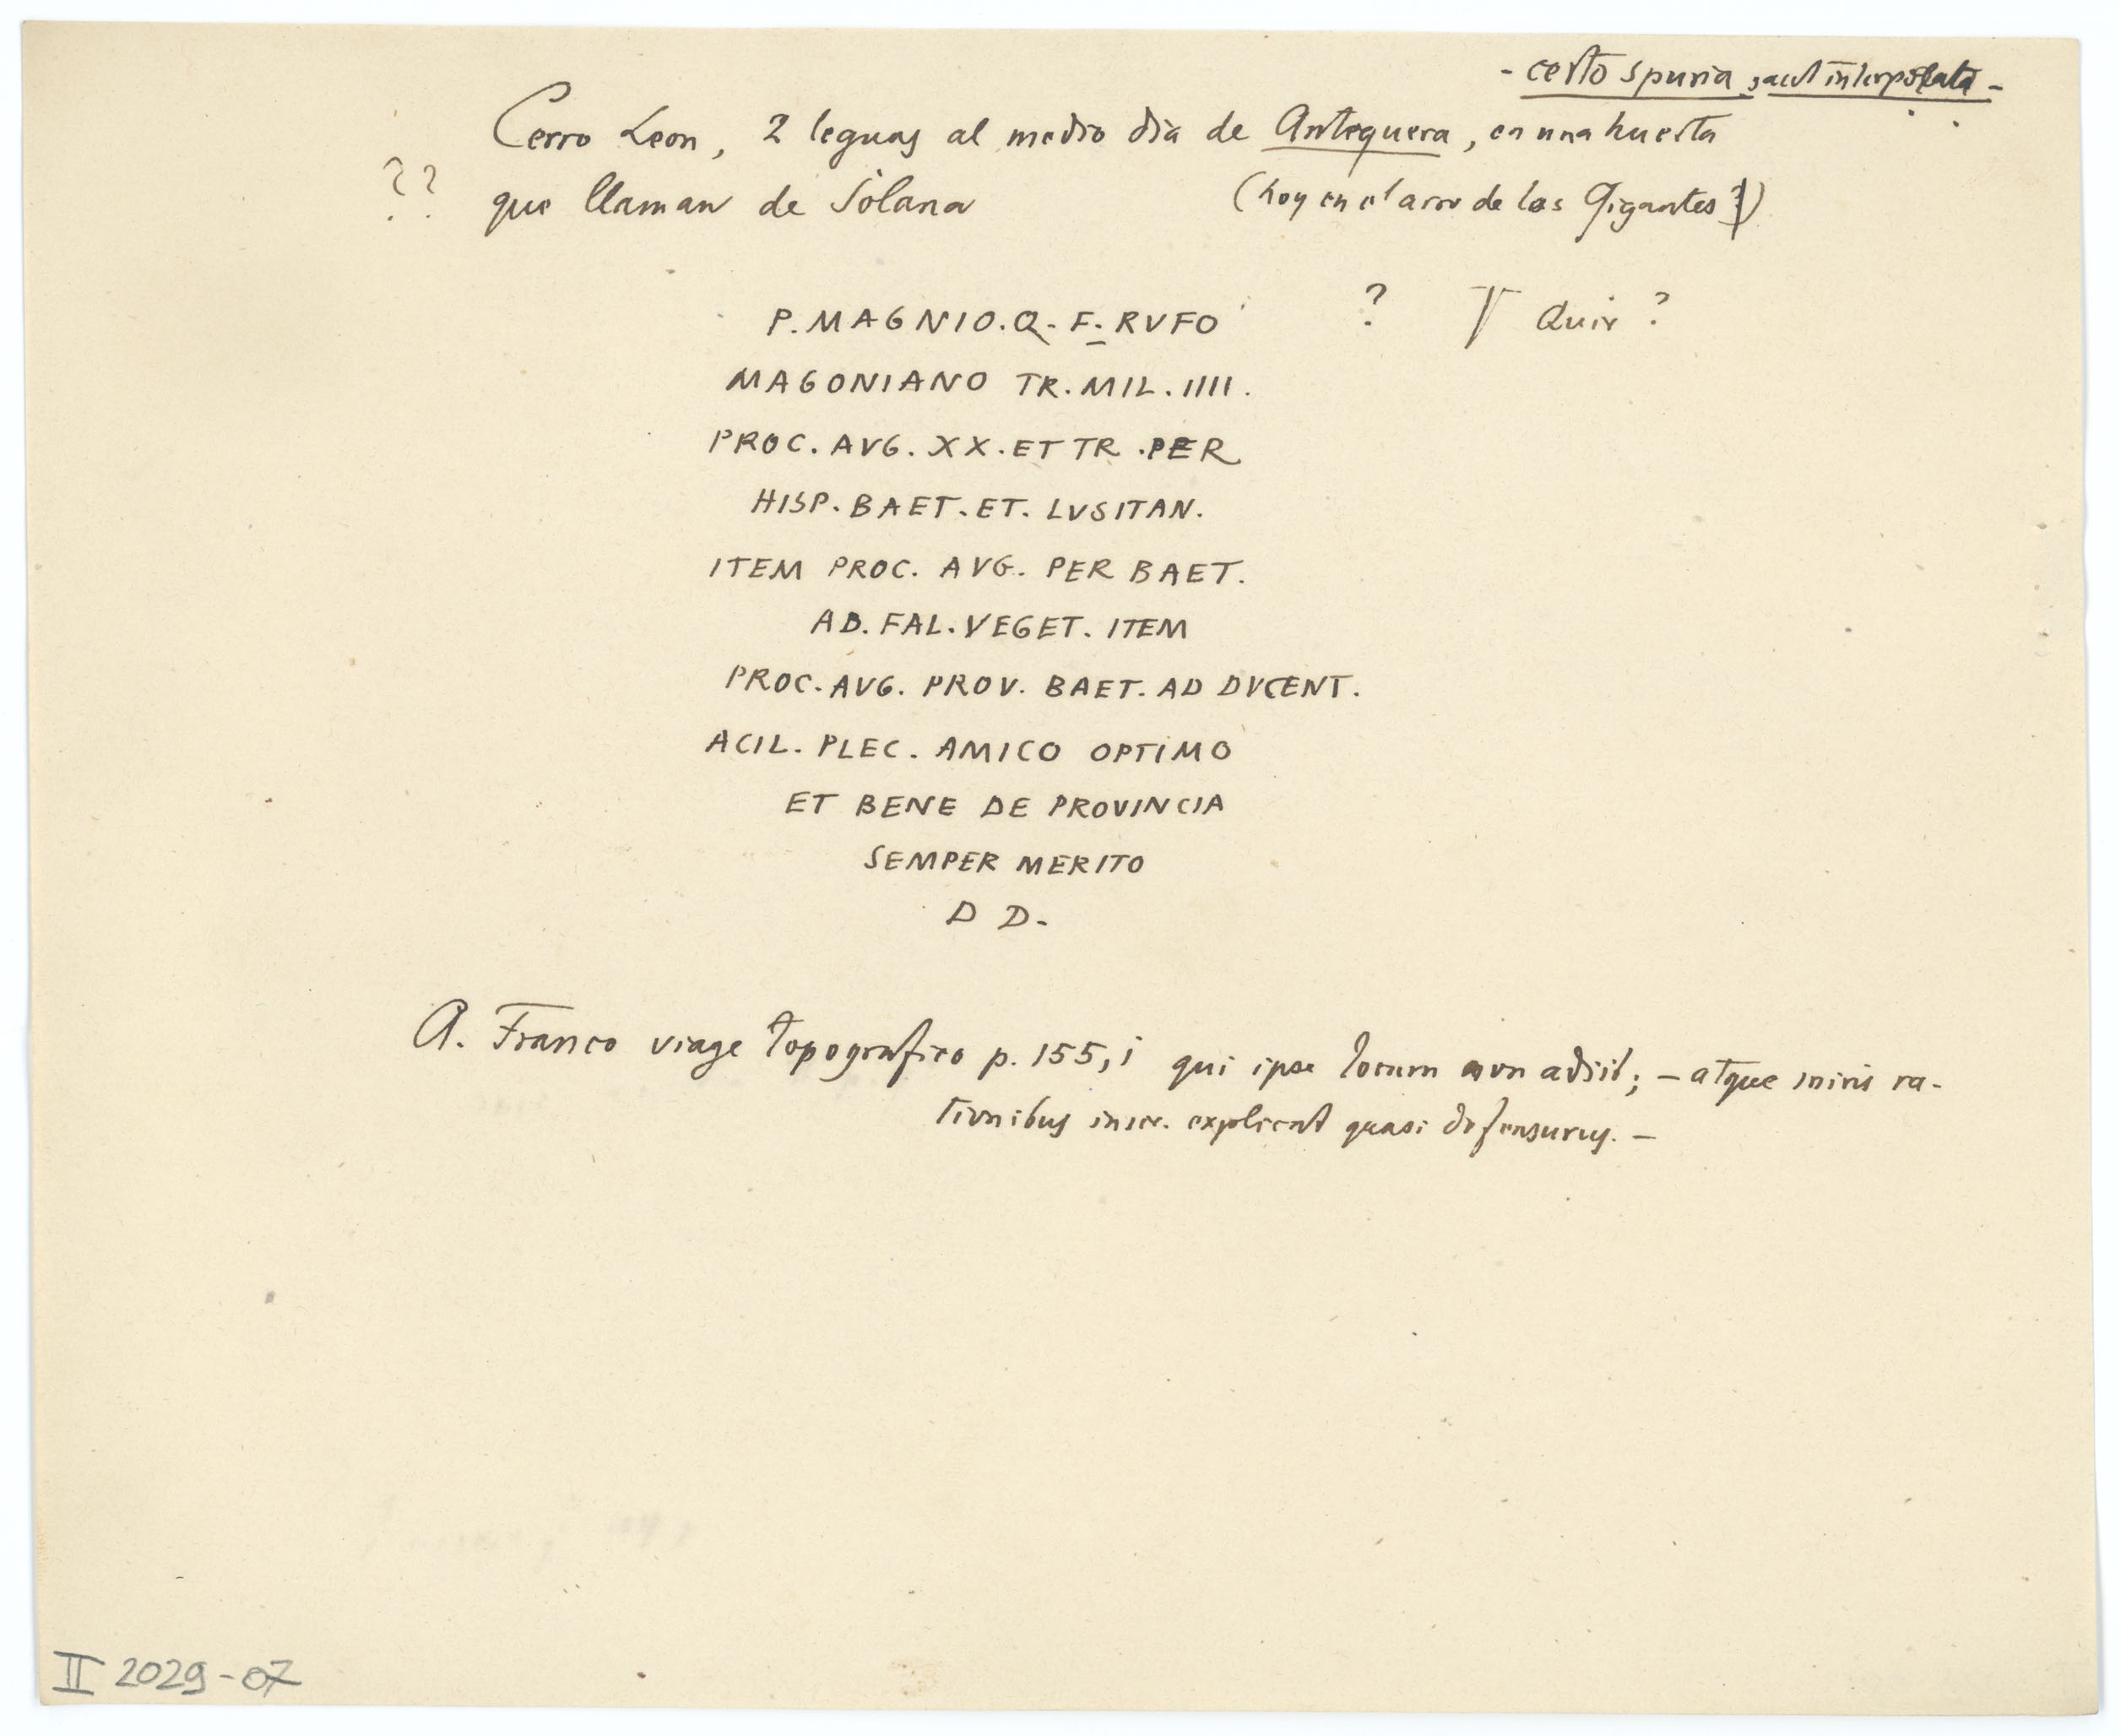 - certo spuria, aut interpolata -
Cerro Leon, 2 leguas al medio dia de Antequera, en una huerta
?? que llaman de Solana (hoy en el arco de los Gigantes?)
P. MAGNIO. Q. F. RVFO ? Quir ?
MAGONIANO TR. MIL. IIII.
PROC. AVG. XX. ET TR. PER
HISP. BAET. ET. LVSITAN.
ITEM PROC. AVG. PER BAET.
AD. FAL. VEGET. ITEM
PROC. AVG. PROV. BAET. AD DVCENT.
ACIL. PLEC. AMICO OPTIMO
ET BENE DE PROVINCIA
SEMPER MERITO
D D.
A. Franco viage topografico p. 155, i qui ipse locum non adiit; - atque miris ra-
tionibus inscr. explicat quasi defensurus. -
II 2029-07